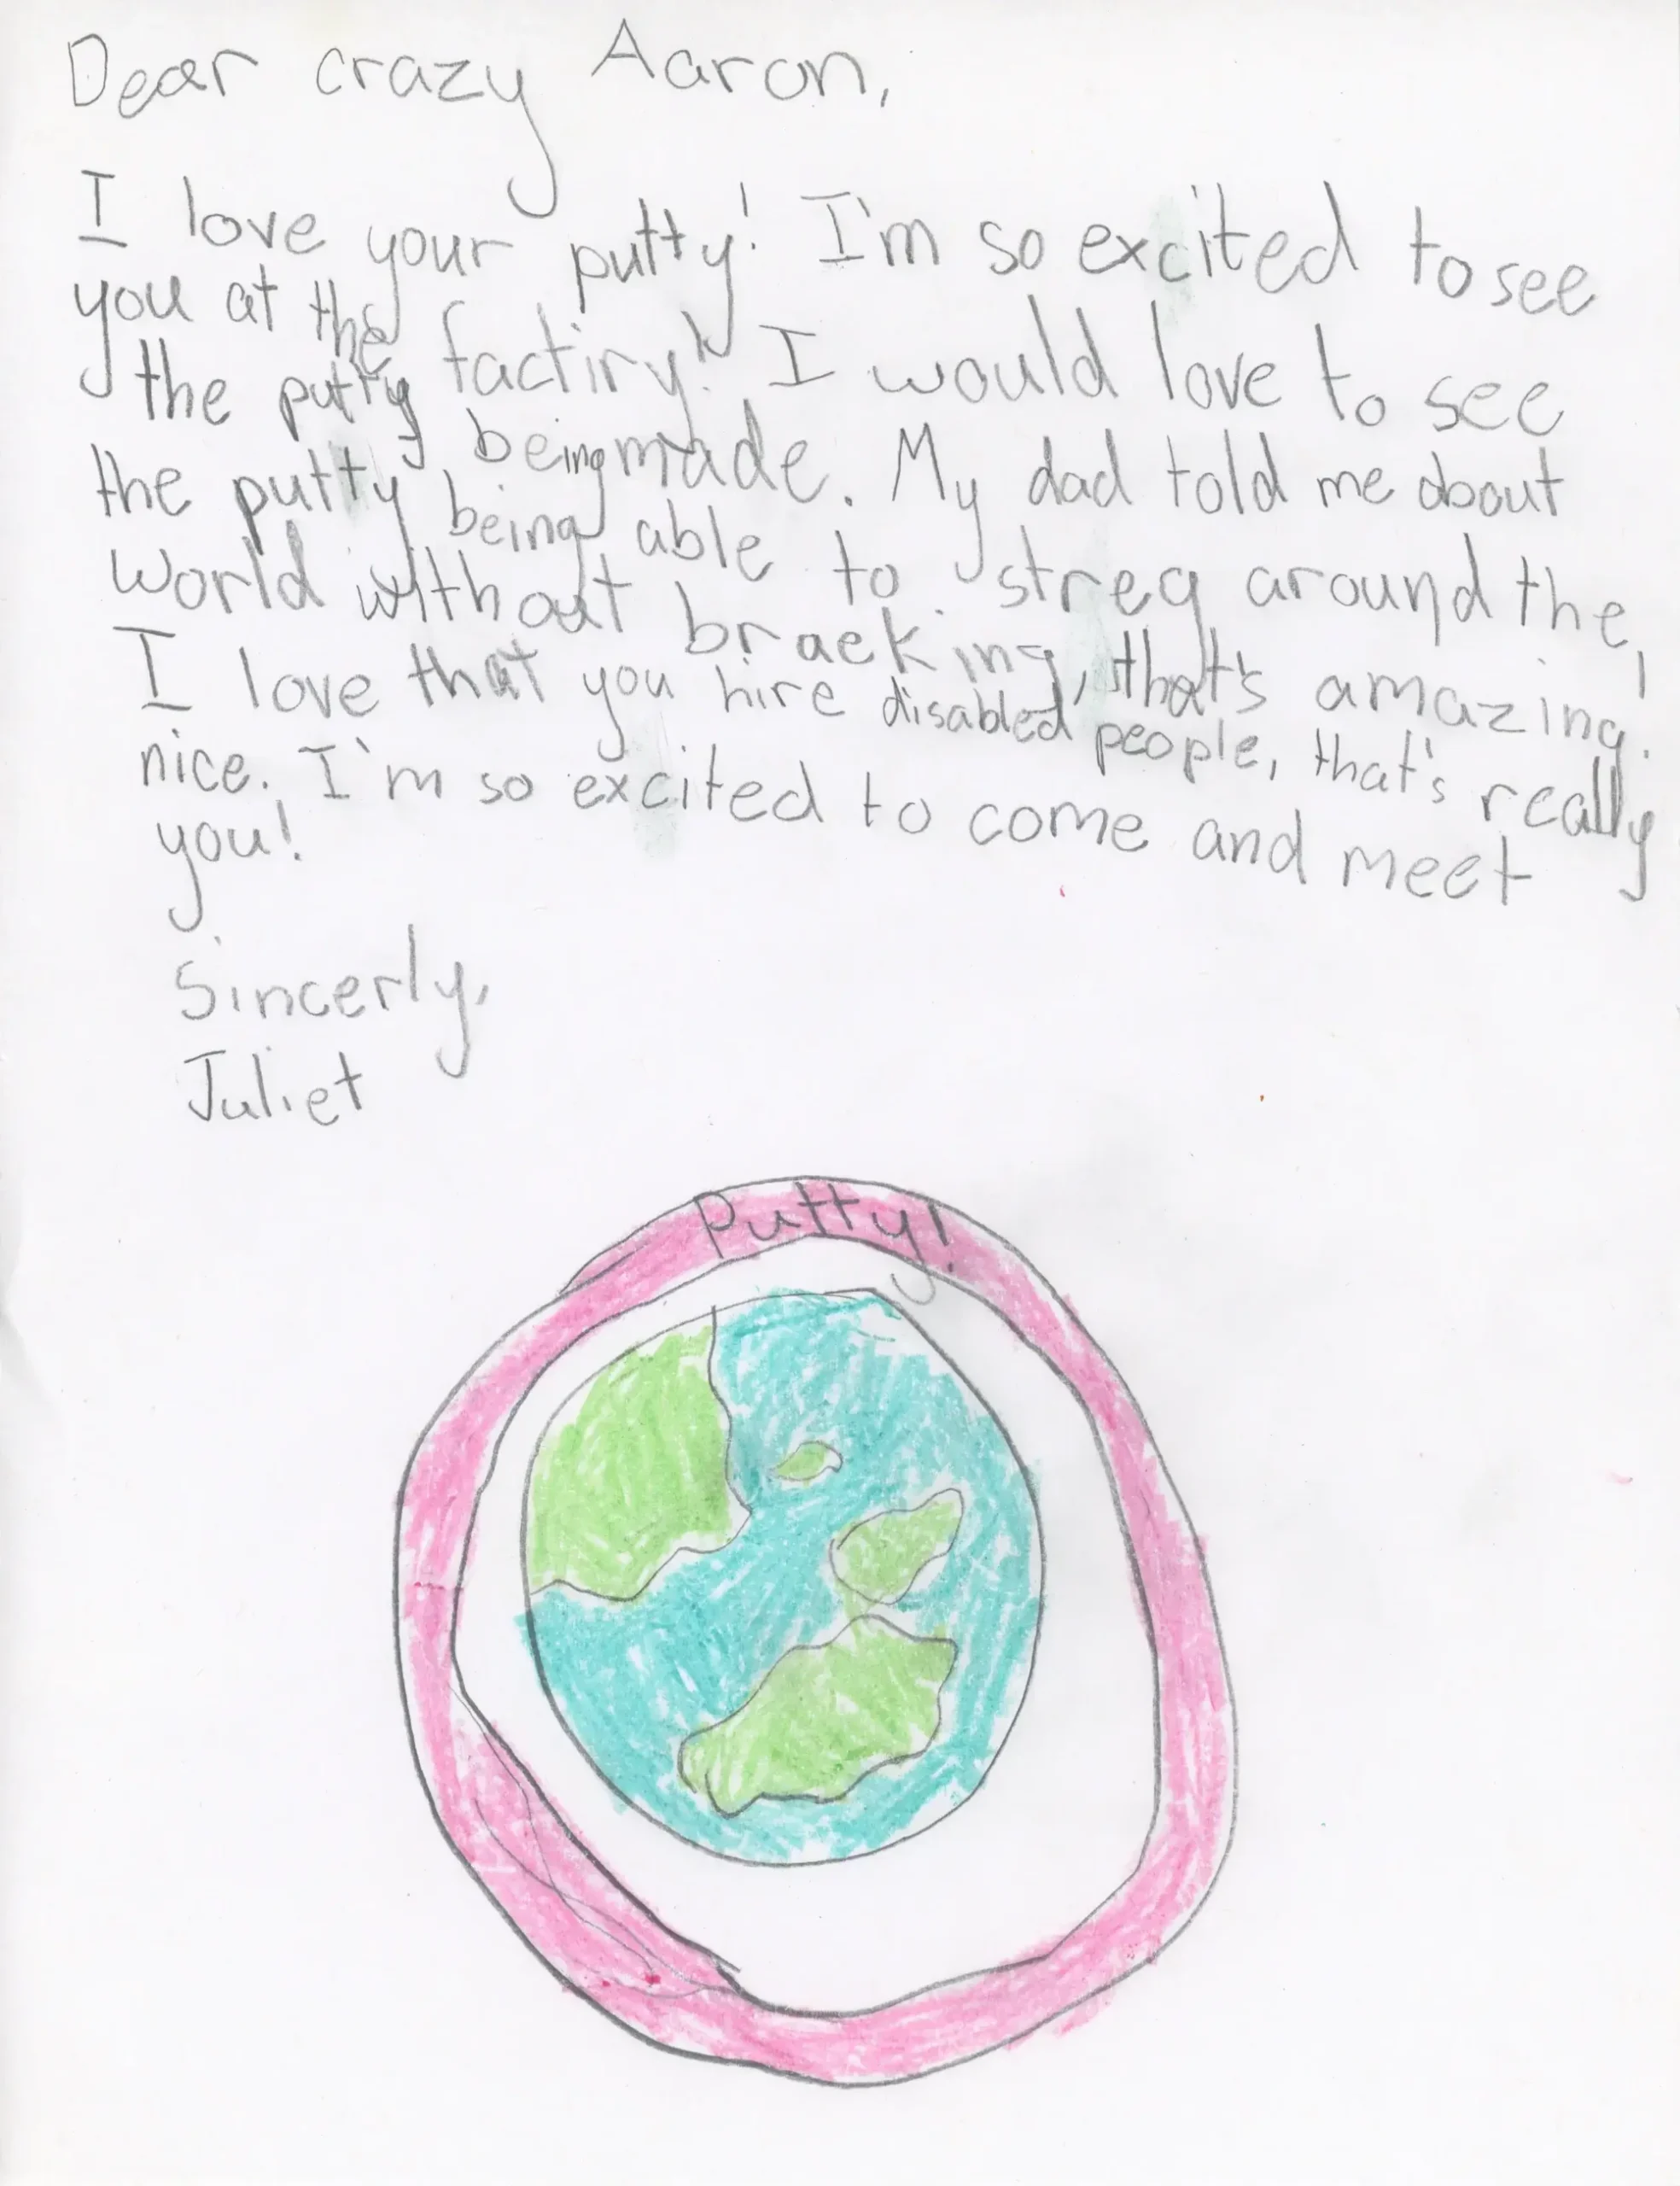 Dear crazy Aaron,
I love your putty! I'm so excited to see
you at the factiry! I would love to see
the putty being made. My dad told me about
the putty being able to streg around the
world without braeking, that's amazing!
I love that you hire disabled people, that's really
nice. I'm so excited to come and meet
you!
Sincerly,
Juliet
Putty!